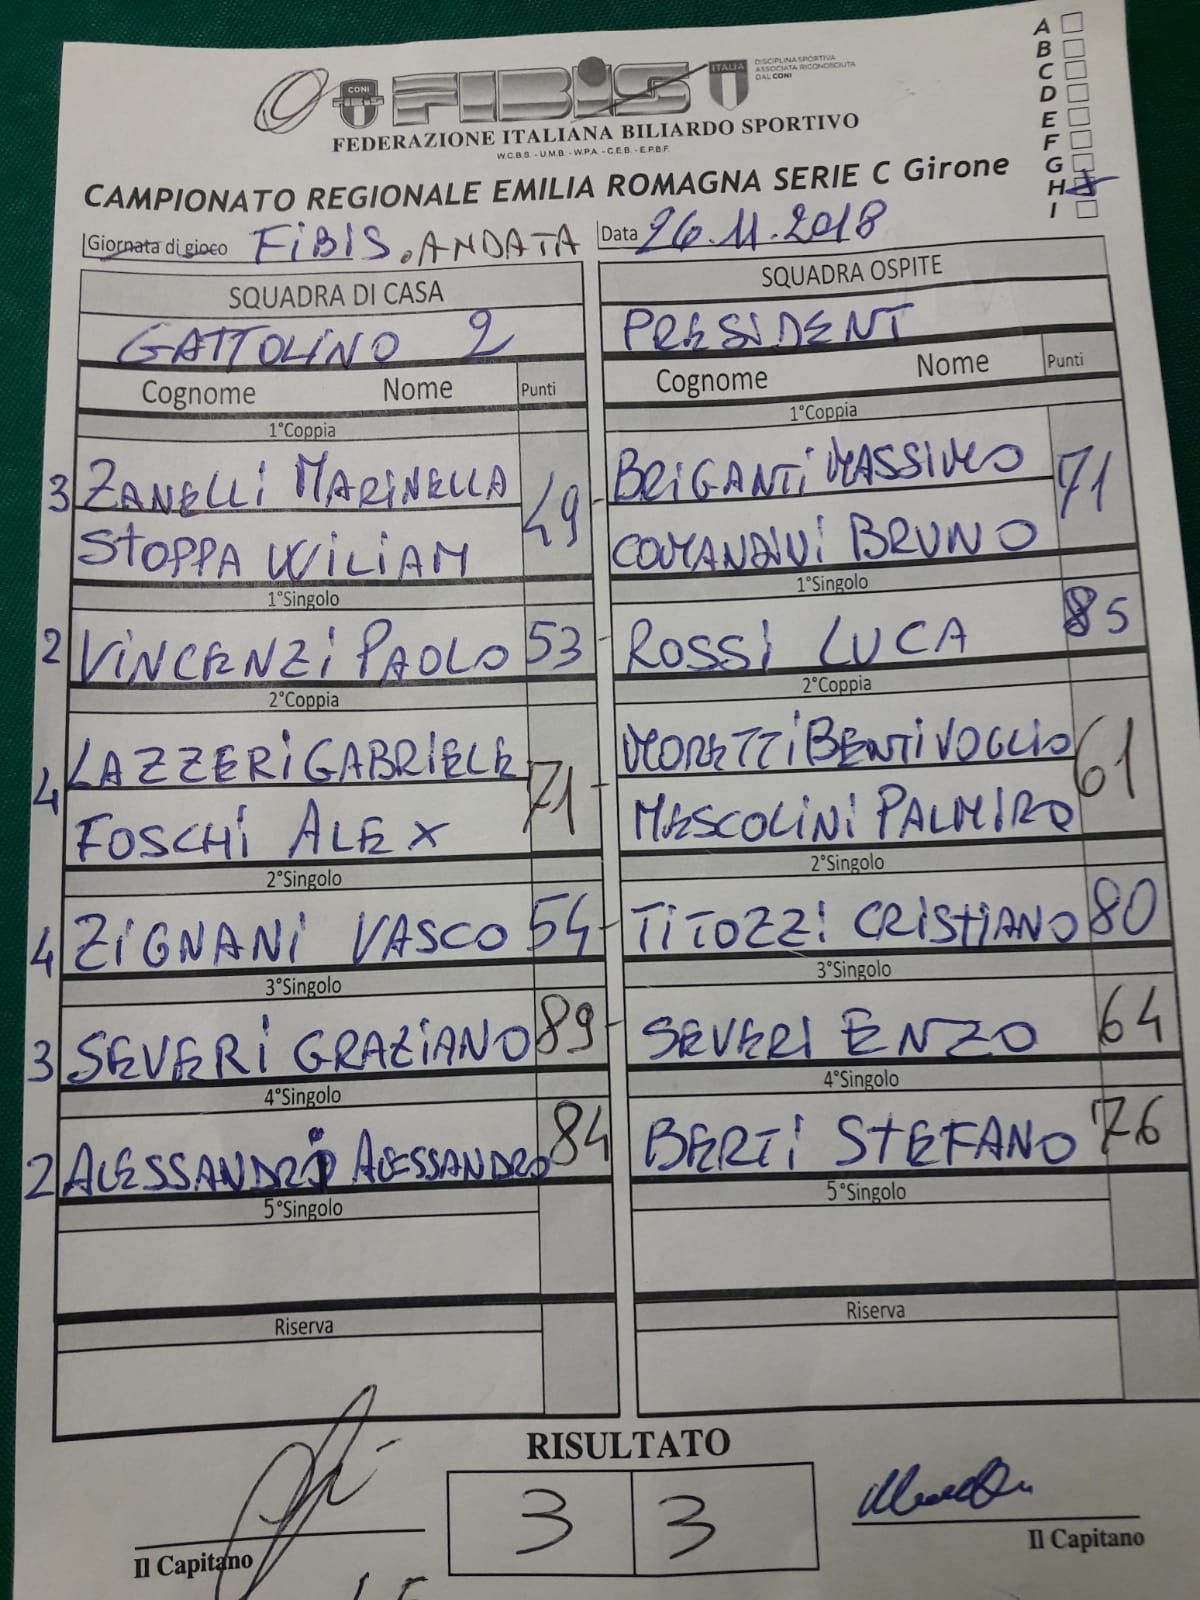 CONI
FIBIS
ITALIA
DISCIPLINA SPORTIVA
ASSOCIATA RICONOSCIUTA
DAL CONI
FEDERAZIONE ITALIANA BILIARDO SPORTIVO
W.C.B.S. - U.M.B. - W.P.A. - C.E.B. - E.P.B.F.
A
B
C
D
E
F
G
H
I
CAMPIONATO REGIONALE EMILIA ROMAGNA SERIE C Girone
Giornata di gioco FIBIS. ANDATA Data 26.11.2018
SQUADRA DI CASA SQUADRA OSPITE
GATTOLINO 2 PRESIDENT
Cognome Nome Punti Cognome Nome Punti
1°Coppia 1°Coppia
3 ZANELLI MARINELLA 49 - BRIGANTI MASSIMO 71
STOPPA WILIAM COMANDINI BRUNO
1°Singolo 1°Singolo
2 VINCENZI PAOLO 53 - ROSSI LUCA 85
2°Coppia 2°Coppia
4 LAZZERI GABRIELE 71 - MORETTI BENTIVOGLIO 61
FOSCHI ALEX MASCOLINI PALMIRO
2°Singolo 2°Singolo
4 ZIGNANI VASCO 54 - TITOZZI CRISTIANO 80
3°Singolo 3°Singolo
3 SEVERI GRAZIANO 89 - SEVERI ENZO 64
4°Singolo 4°Singolo
2 ALESSANDRI ALESSANDRO 84 BERTI STEFANO 76
5°Singolo 5°Singolo
Riserva Riserva
RISULTATO
3 3
Il Capitano Il Capitano